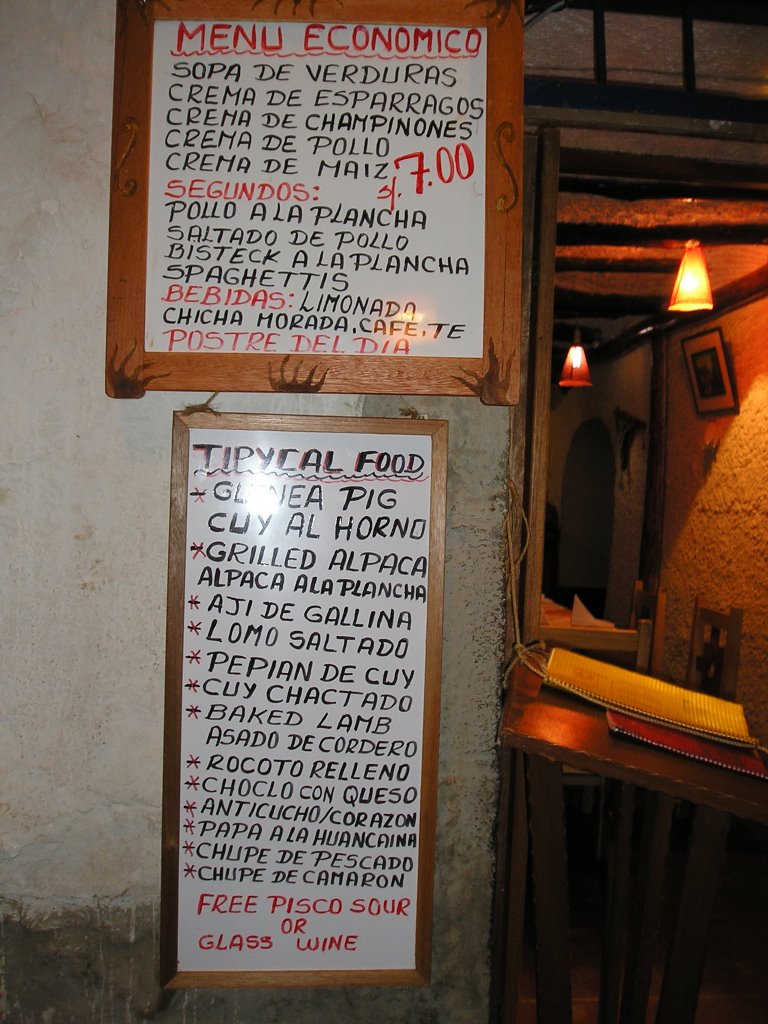 MENU ECONOMICO
SOPA DE VERDURAS
CREMA DE ESPARRAGOS
CREMA DE CHAMPINONES
CREMA DE POLLO
CREMA DE MAIZ S/. 7.00
SEGUNDOS:
POLLO A LA PLANCHA
SALTADO DE POLLO
BISTECK A LA PLANCHA
SPAGHETTIS
BEBIDAS: LIMONADA
CHICHA MORADA, CAFE, TE
POSTRE DEL DIA
TIPYCAL FOOD
* GUINEA PIG
CUY AL HORNO
* GRILLED ALPACA
ALPACA A LA PLANCHA
* AJI DE GALLINA
* LOMO SALTADO
* PEPIAN DE CUY
* CUY CHACTADO
* BAKED LAMB
ASADO DE CORDERO
* ROCOTO RELLENO
* CHOCLO CON QUESO
* ANTICUCHO/CORAZON
* PAPA A LA HUANCAINA
* CHUPE DE PESCADO
* CHUPE DE CAMARON
FREE PISCO SOUR
OR
GLASS WINE